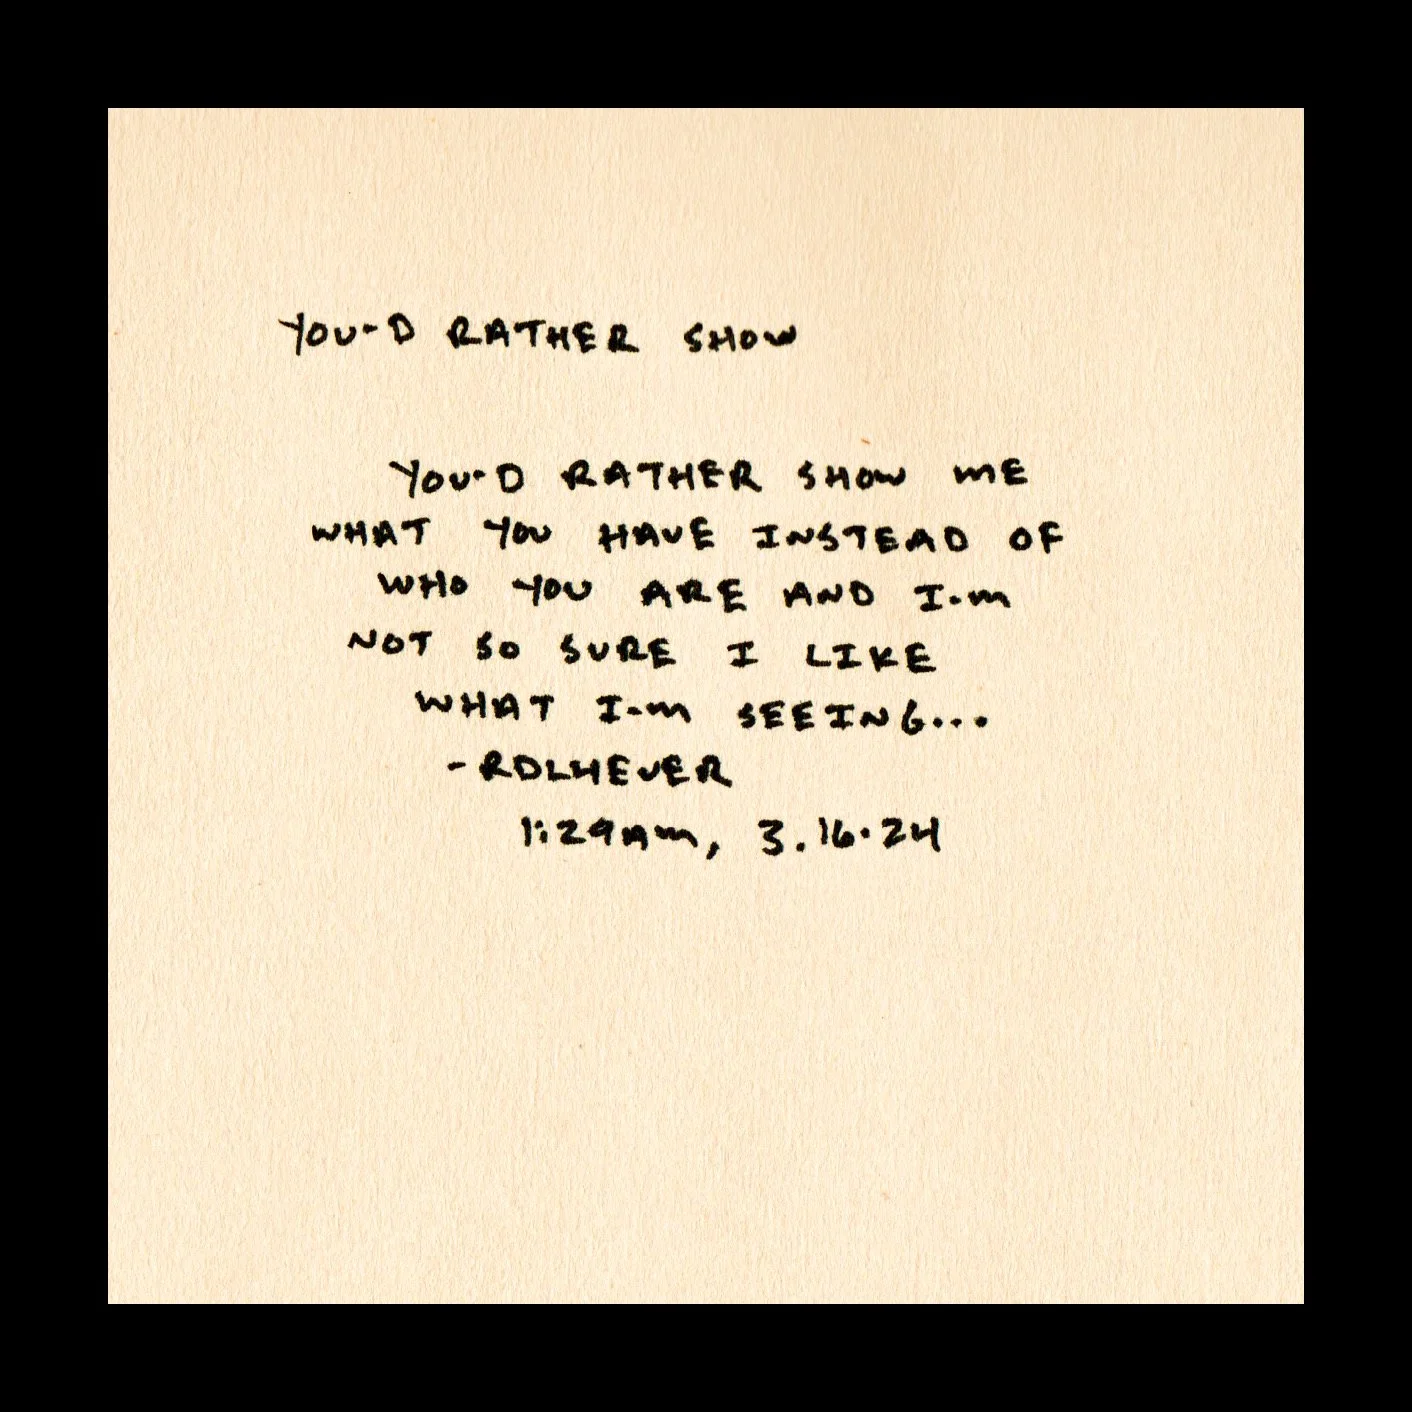 YOU-D RATHER SHOW
YOU-D RATHER SHOW ME
WHAT YOU HAVE INSTEAD OF
WHO YOU ARE AND I-M
NOT SO SURE I LIKE
WHAT I-M SEEING...
-RDLHEVER
1:29AM, 3.16.24